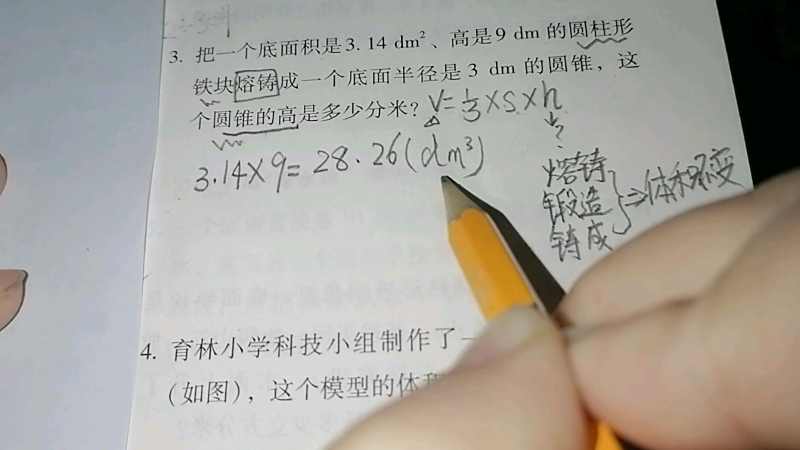 3. 把一个底面积是3.14 dm²、高是9 dm 的圆柱形
铁块熔铸成一个底面半径是 3 dm 的圆锥，这
个圆锥的高是多少分米？V=⅓×S×h
?
3.14×9=28.26(dm³)
熔铸
锻造
铸成
⇒体积不变
4. 育林小学科技小组制作了一
（如图），这个模型的体积